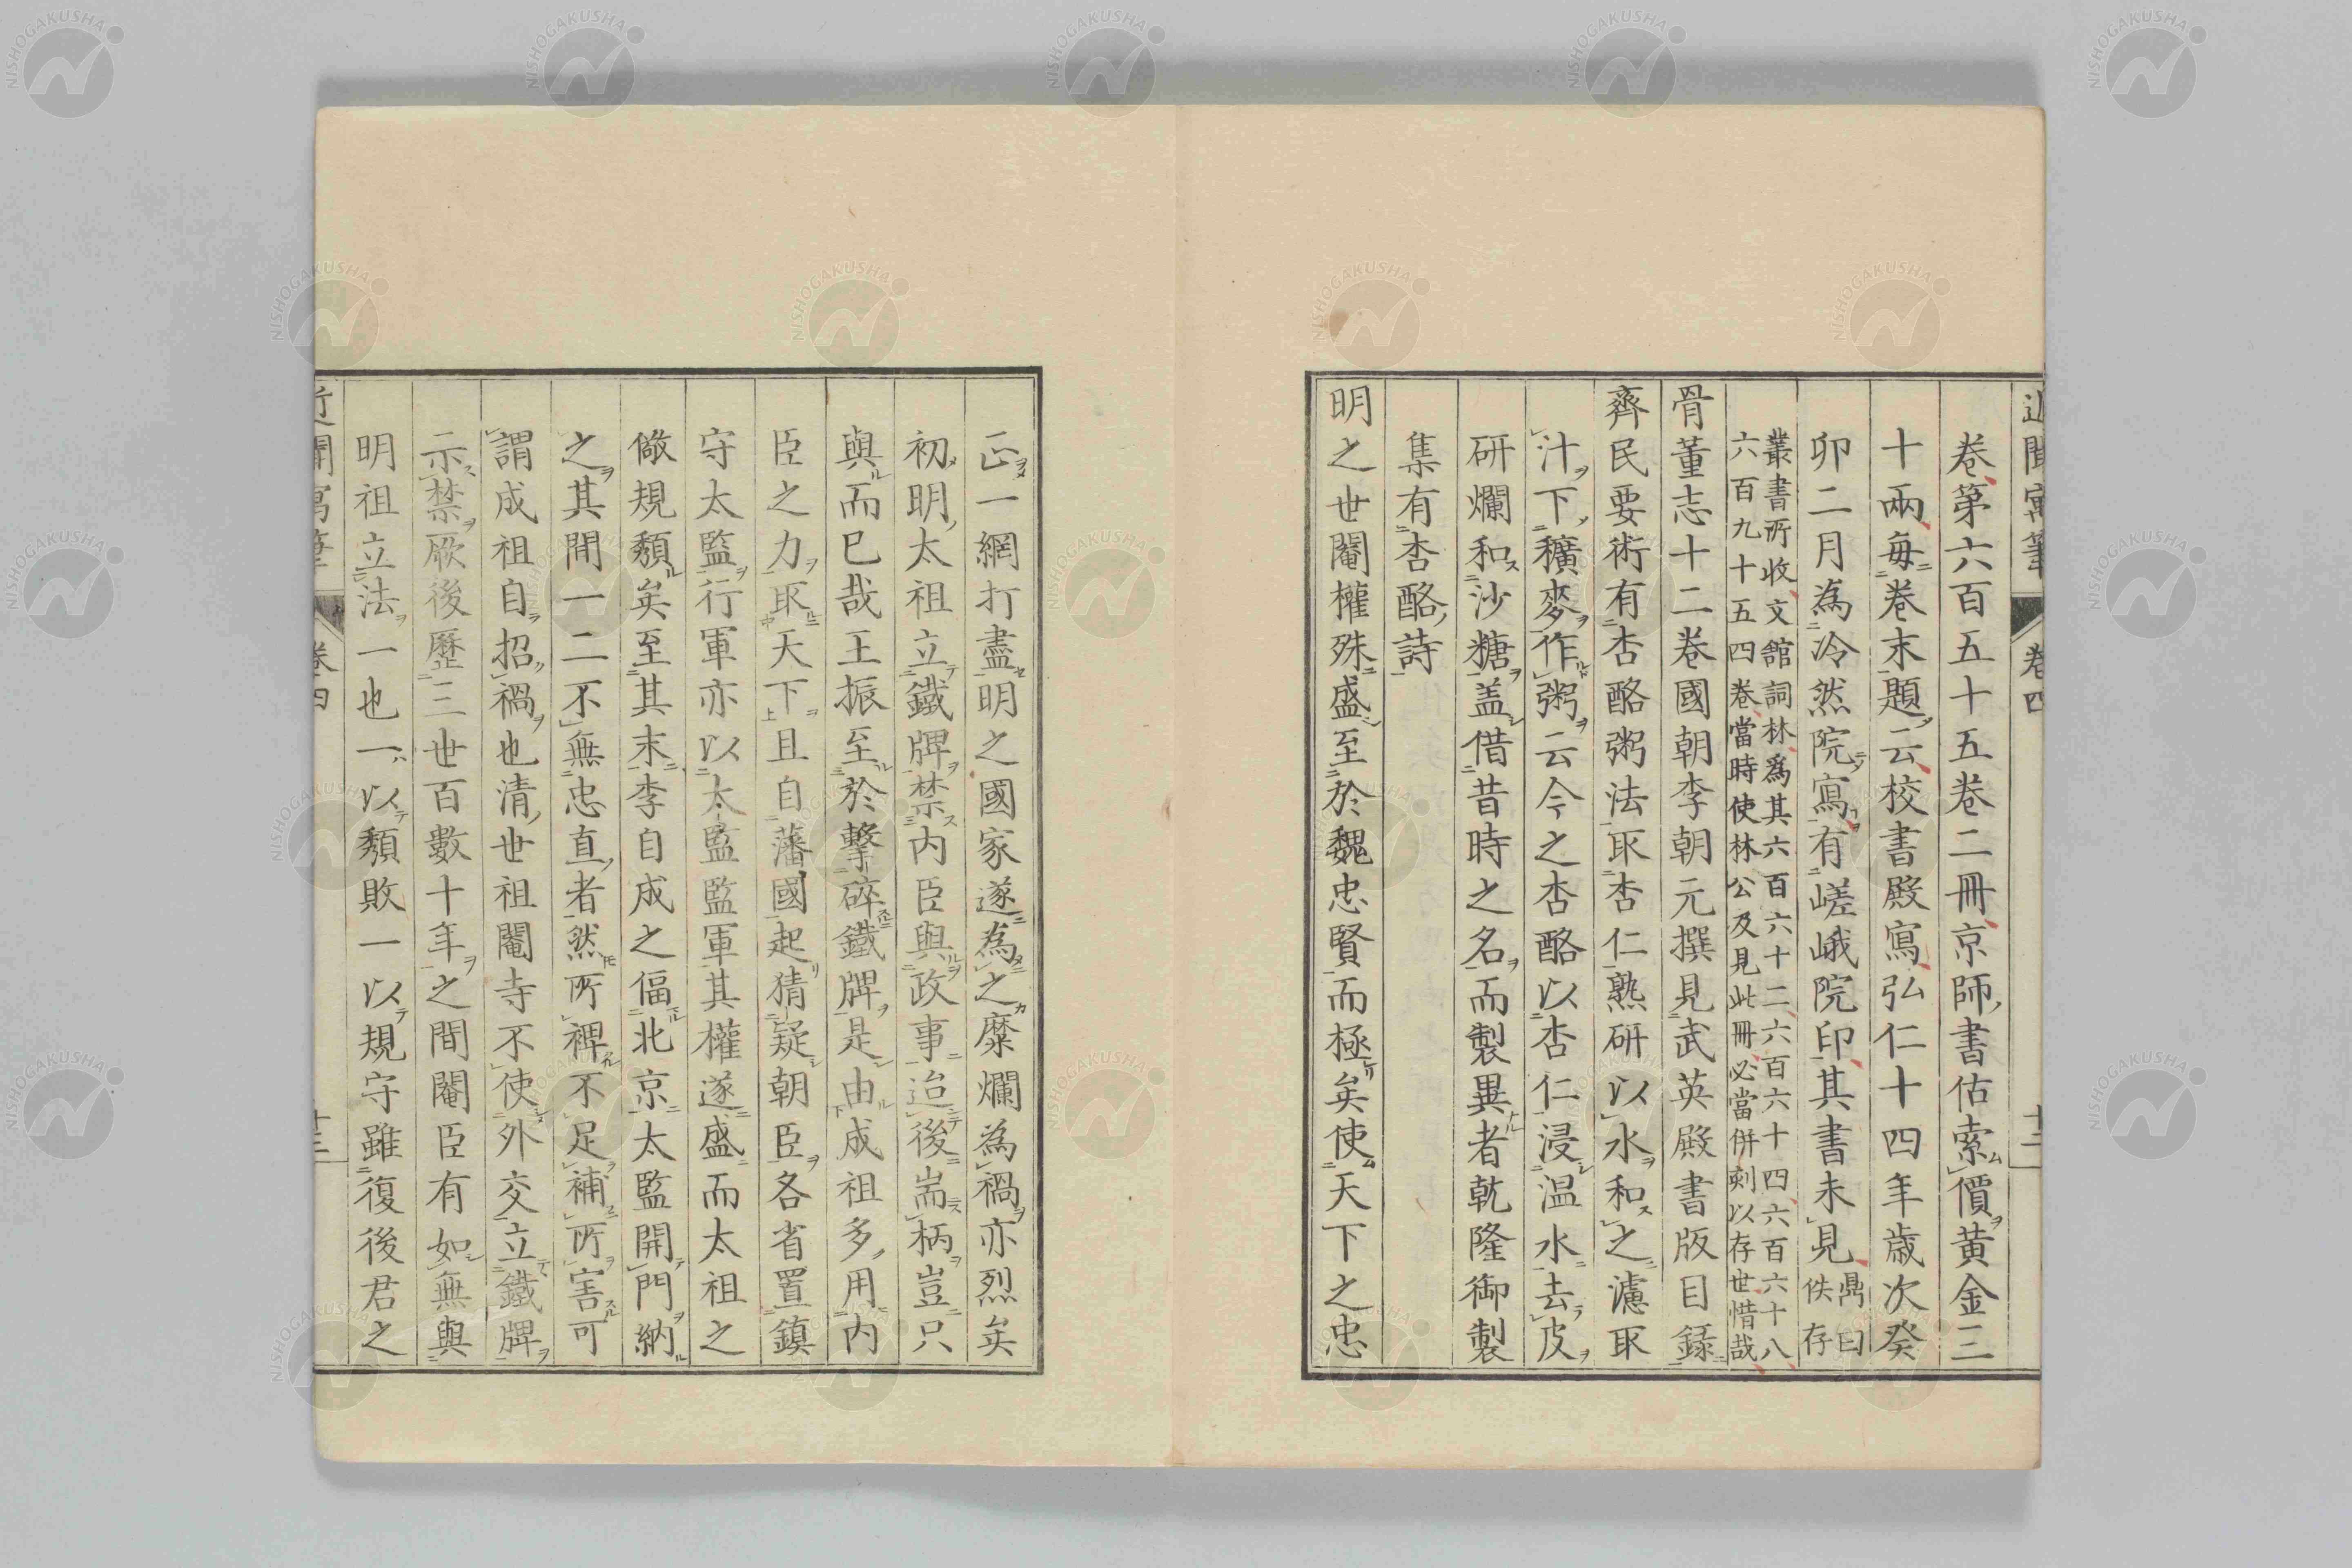 近聞寓筆 卷四 十二
卷第六百五十五卷二冊京師書估索價黃金三
十兩每卷末題云校書殿寫弘仁十四年歲次癸
卯二月為冷然院寫有嵯峨院印其書未見鼎曰佚存
叢書所收文館詞林爲其六百六十二六百六十四六百六十八
六百九十五四卷當時使林公及見此冊必當併刻以存世惜哉
骨董志十二卷國朝李朝元撰見武英殿書版目錄
齊民要術有杏酪粥法取杏仁熟研以水和之濾取
汁下穬麥作粥云今之杏酪以杏仁浸溫水去皮
研爛和沙糖蓋借昔時之名而製異者乾隆御製
集有杏酪詩
明之世閹權殊盛至於魏忠賢而極矣使天下之忠
正一網打盡明之國家遂為之糜爛為禍亦烈矣
初明太祖立鐵牌禁內臣與政事迨後耑柄豈只
與而已哉王振至於擊碎鐵牌是由成祖多用內
臣之力取天下且自藩國起猜疑朝臣各省置鎮
守太監行軍亦以太監監軍其權遂盛而太祖之
倣規頹矣至其末李自成之偪北京太監開門納
之其間一二不無忠直者然所裨不足補所害可
謂成祖自招禍也清世祖閹寺不使外交立鐵牌
示禁厥後歷三世百數十年之間閹臣有如無與
明祖立法一也一以頹敗一以規守雖復後君之
近聞寓筆 卷四 十三
NISHOGAKUSHA